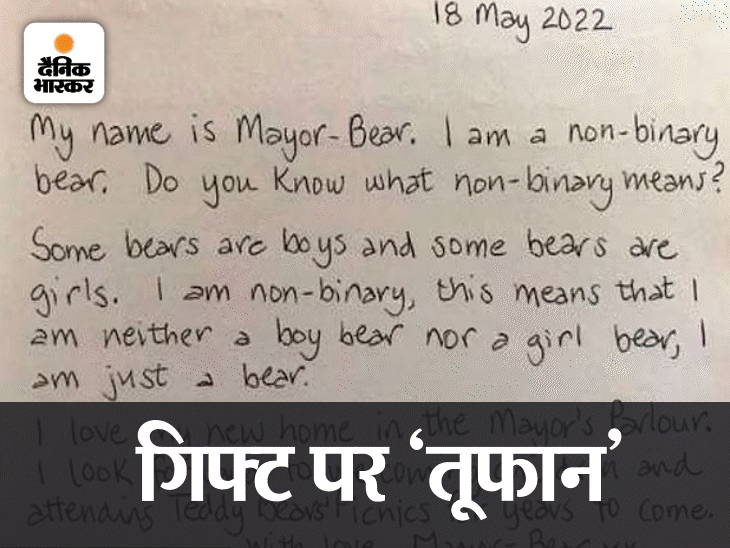 18 May 2022
दैनिक
भास्कर
My name is Mayor-Bear. I am a non-binary
bear. Do you know what non-binary means?
Some bears are boys and some bears are
girls. I am non-binary, this means that I
am neither a boy bear nor a girl bear, I
am just a bear.
I love my new home in the Mayor's Parlour.
I look and
attending Teddy Bears' Picnics years to come.
With love, Mayor-Bear
गिफ्ट पर ‘तूफान’